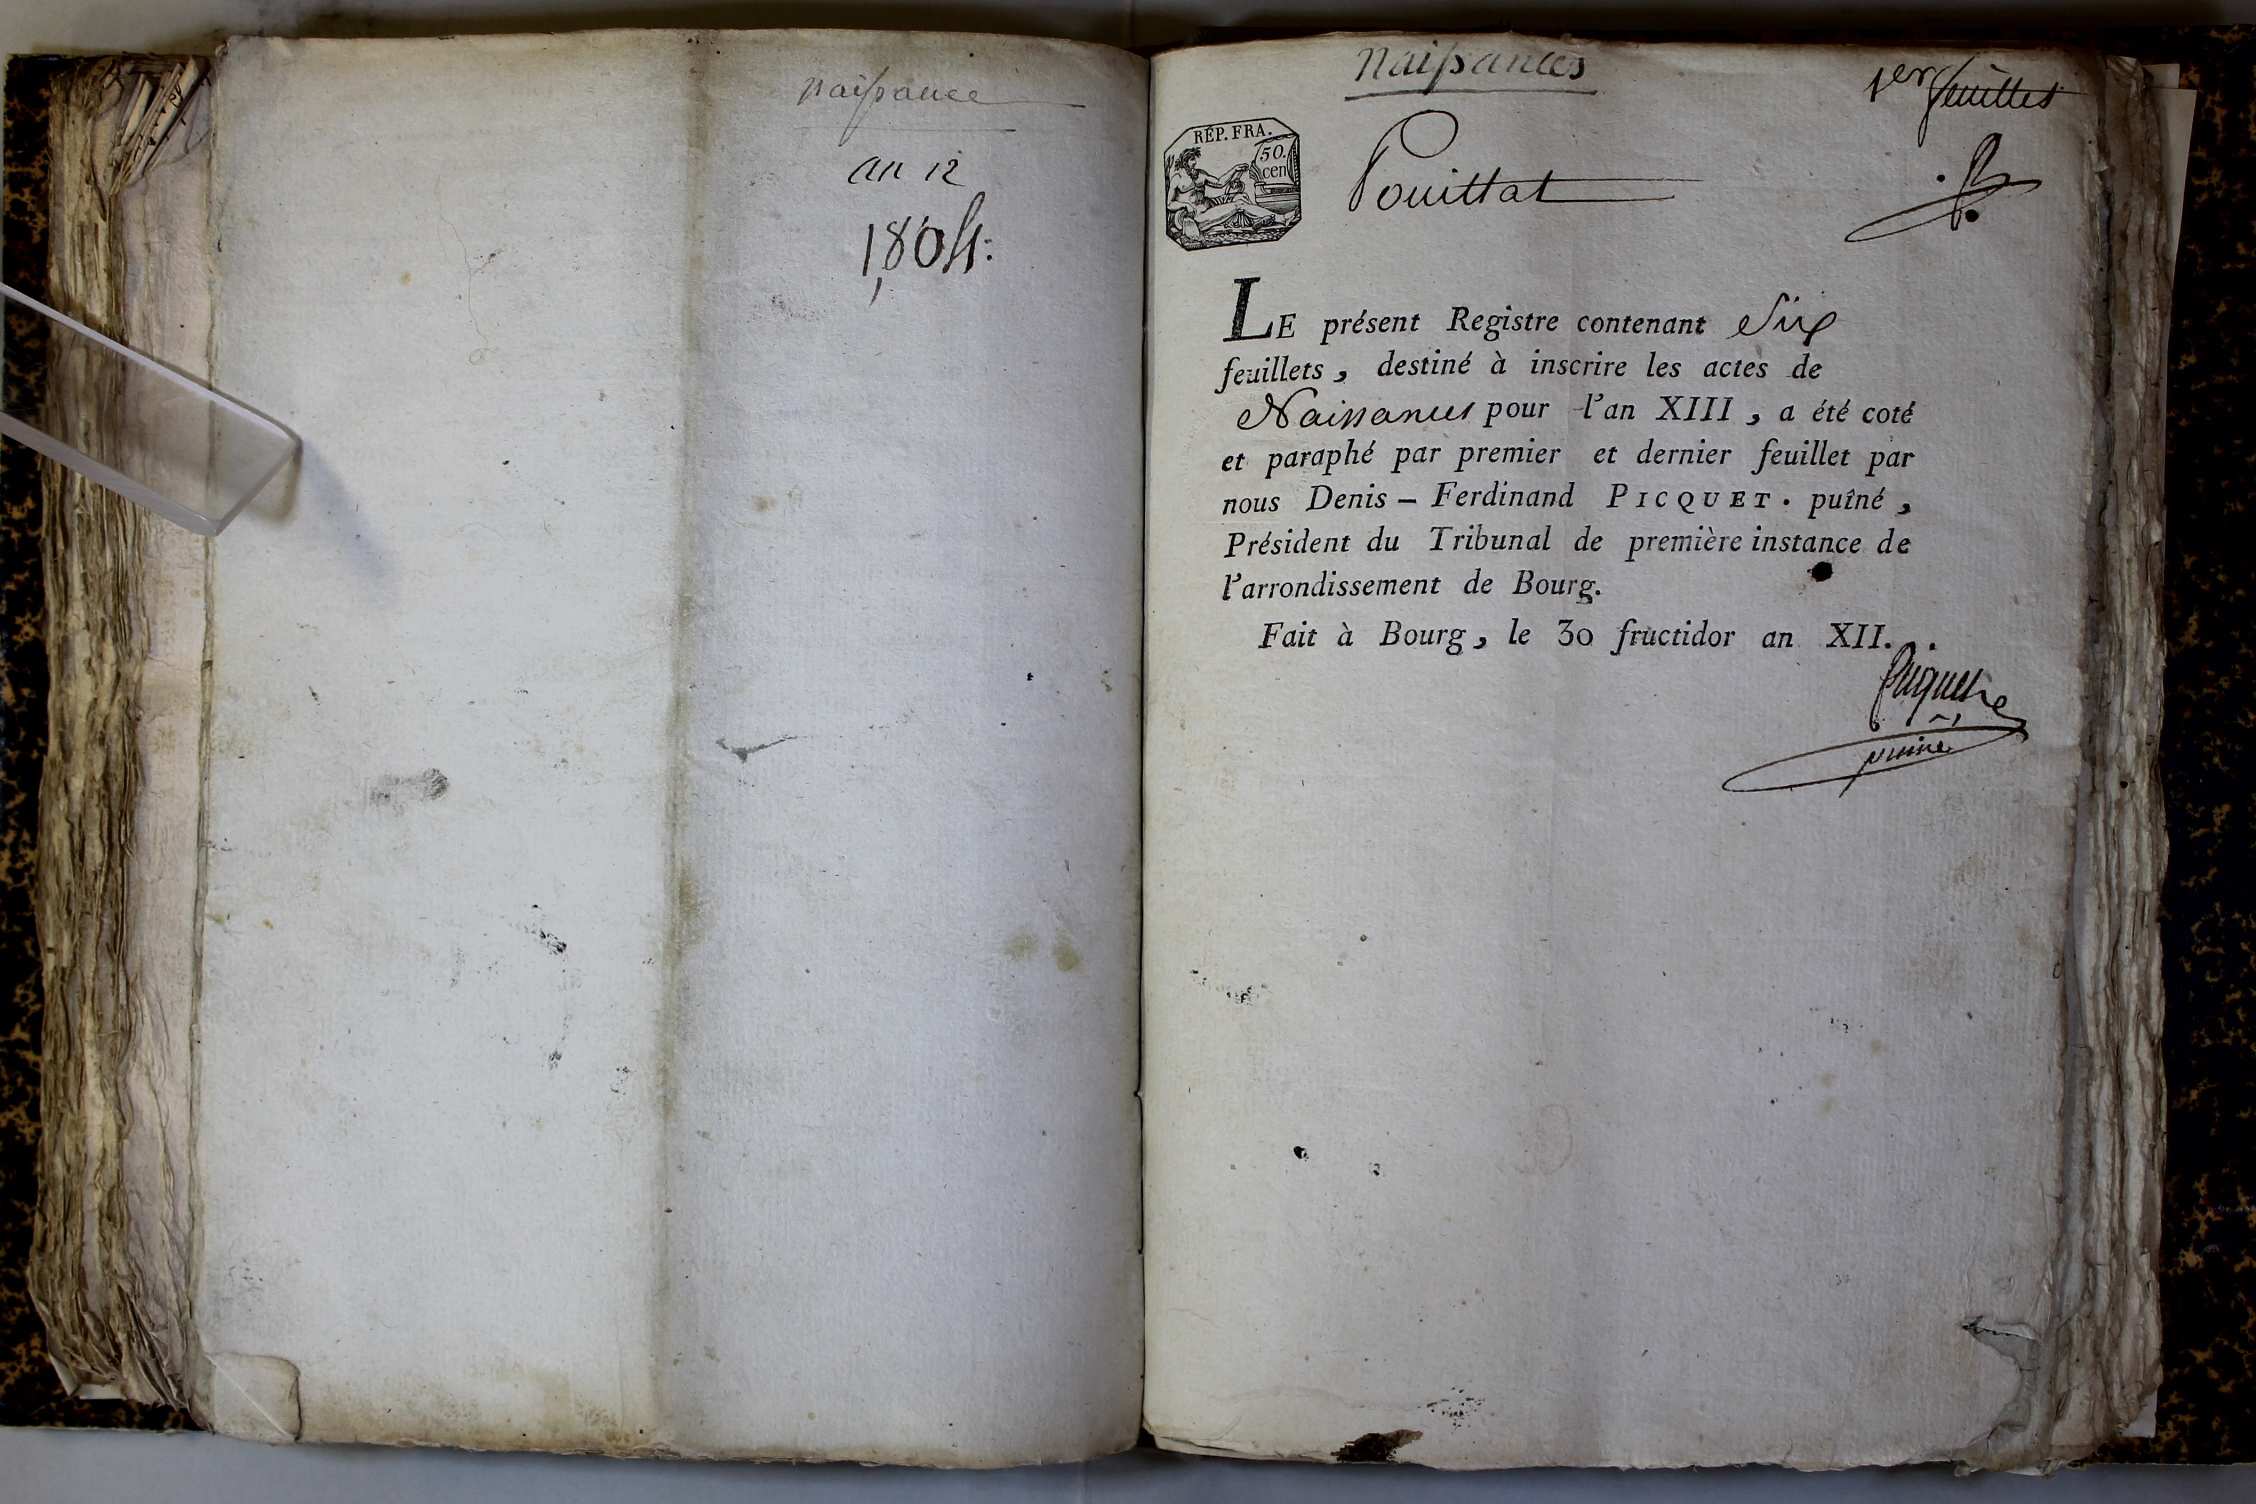 naissance
an 12
1,804:
Naissances
1er feuillet
RÉP. FRA.
50.
cen
Pouillat
LE présent Registre contenant Six
feuillets, destiné à inscrire les actes de
Naissances pour l'an XIII, a été coté
et paraphé par premier et dernier feuillet par
nous Denis – Ferdinand PICQUET. puîné,
Président du Tribunal de première instance de
l'arrondissement de Bourg.
Fait à Bourg, le 30 fructidor an XII.
Picquet
puiné